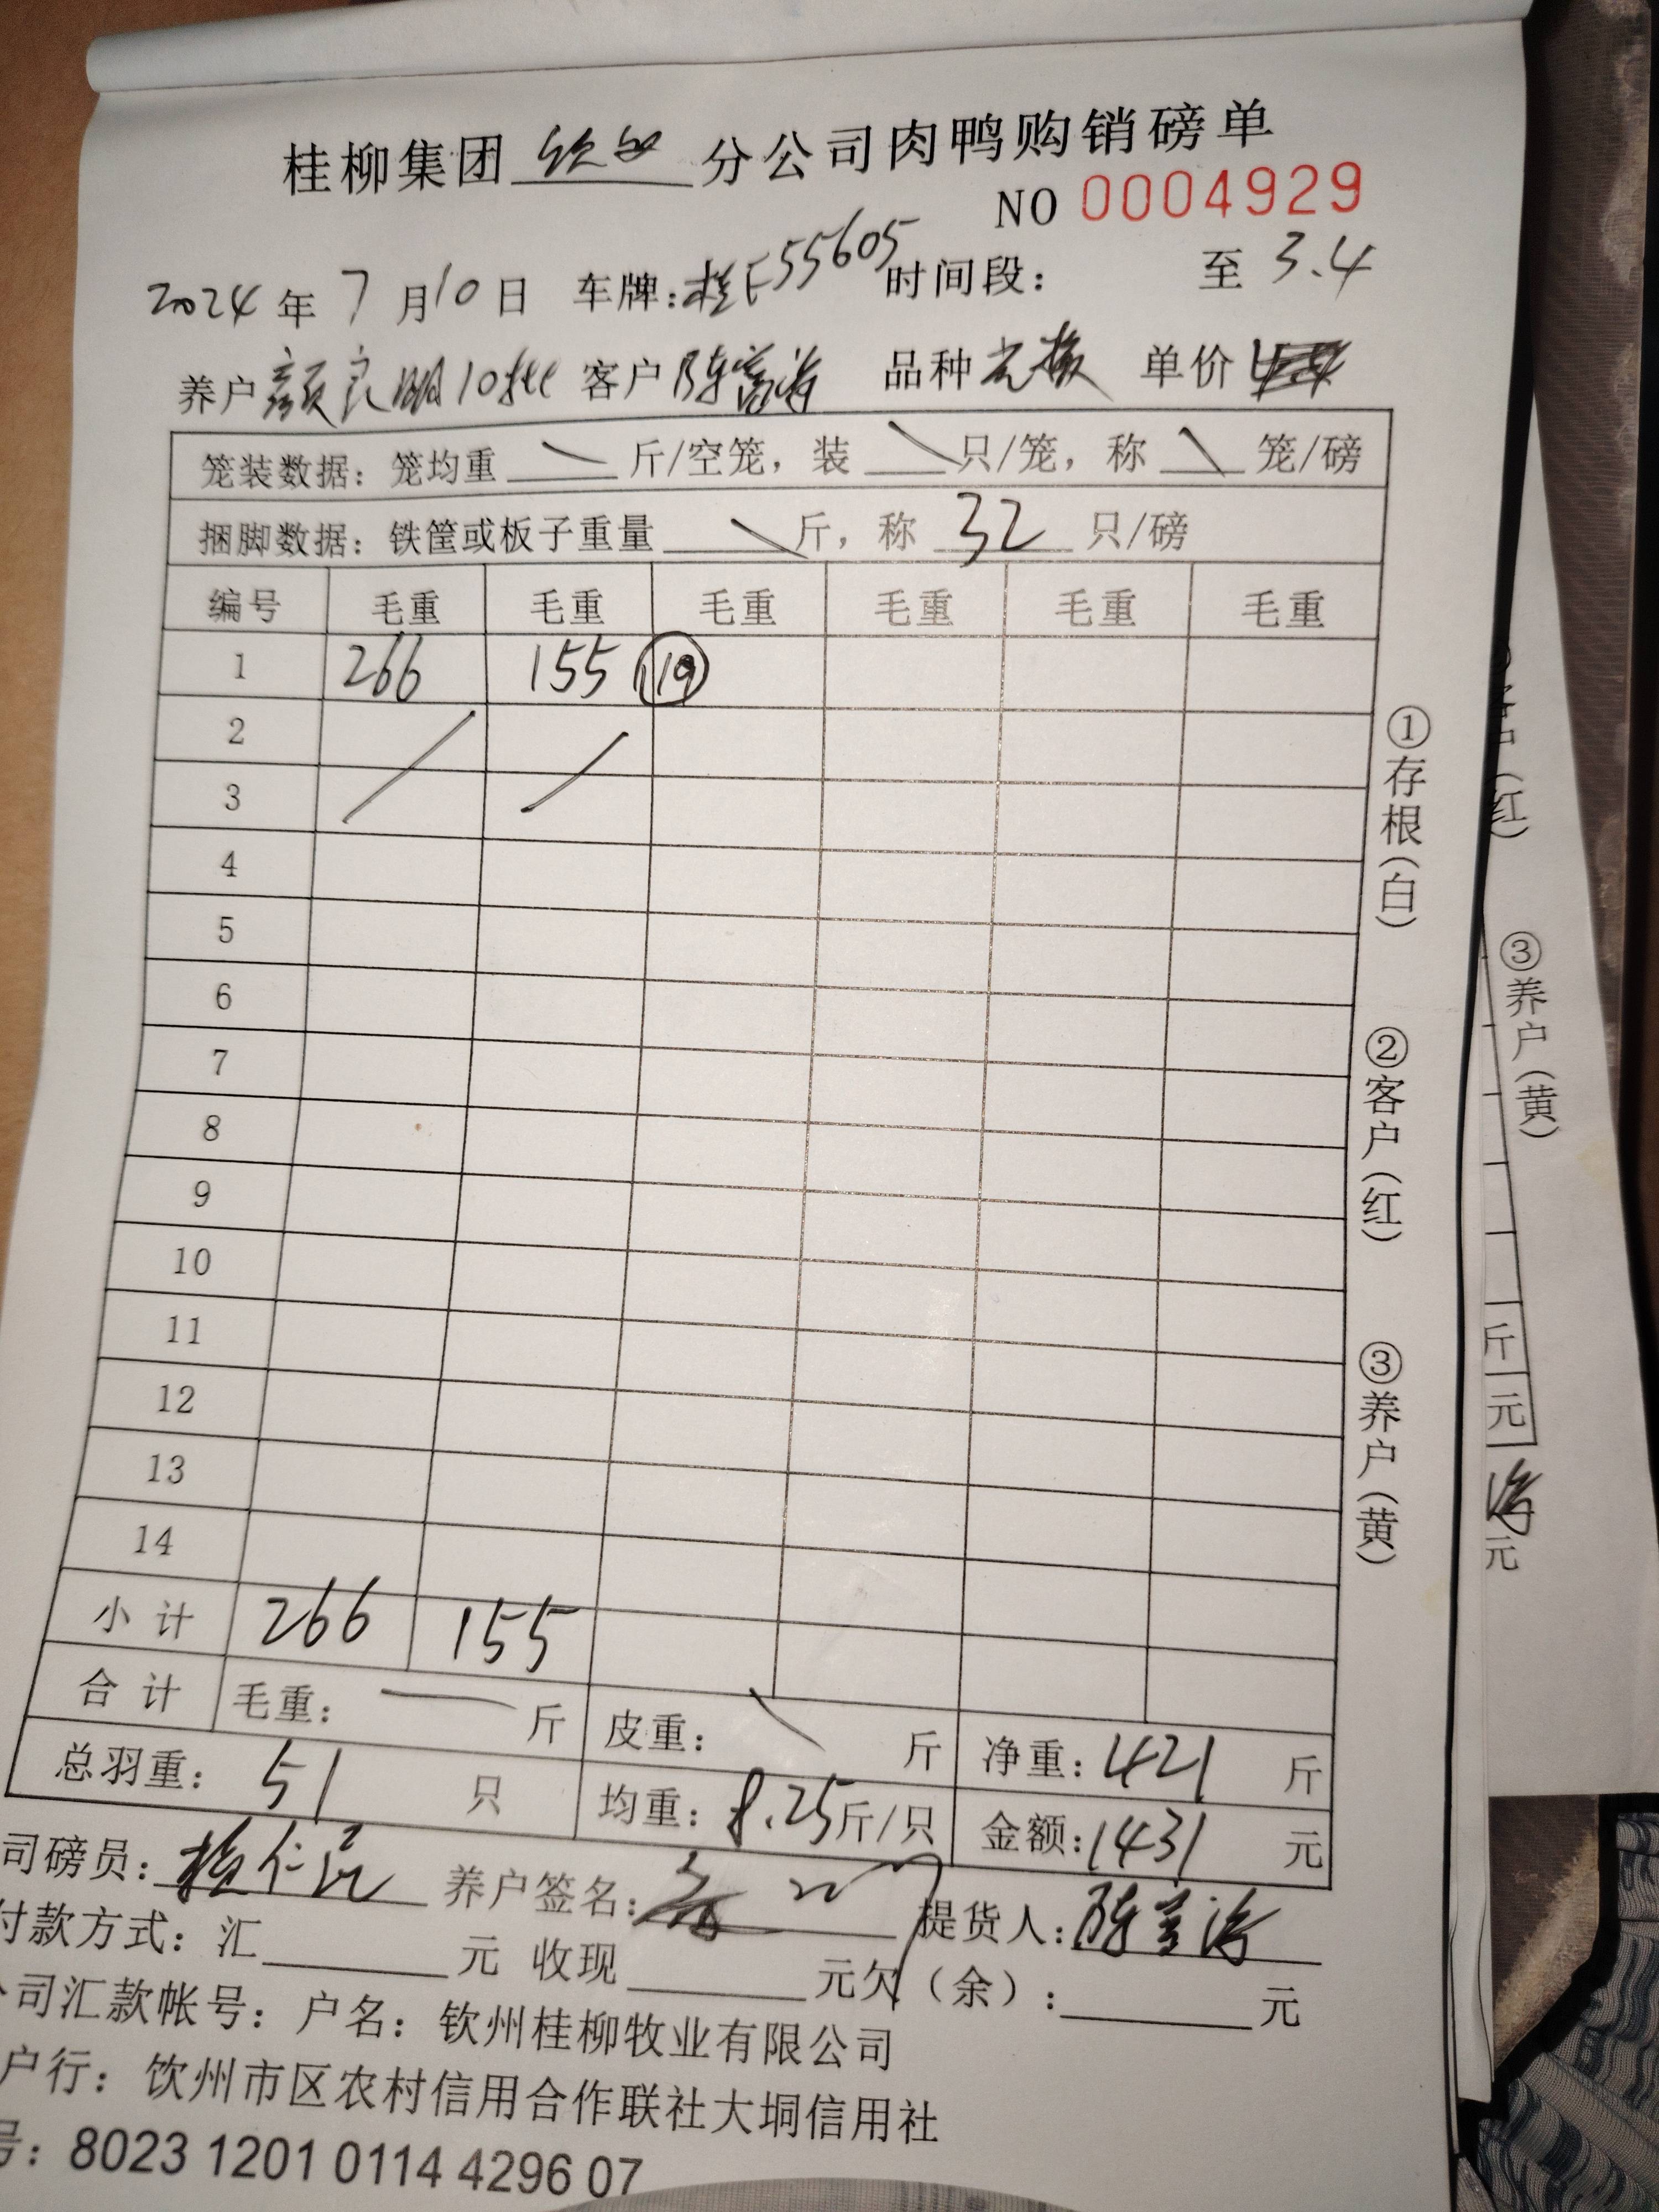 桂柳集团 钦州 分公司肉鸭购销磅单
NO 0004929
2024 年 7 月 10 日 车牌:桂E55605 时间段: 至 3.4
养户 颜良明10批 客户 陈 品种 单价
笼装数据: 笼均重 \ 斤/空笼, 装 \ 只/笼, 称 \ 笼/磅
捆脚数据: 铁筐或板子重量 \ 斤, 称 32 只/磅
编号 毛重 毛重 毛重 毛重 毛重 毛重
1 266 155 19
2
3
4
5
6
7
8
9
10
11
12
13
14
小计 266 155
合计 毛重: — 斤 皮重: \ 斤 净重: 421 斤
总羽重: 51 只 均重: 8.25 斤/只 金额: 1431 元
司磅员: 养户签名: 提货人: 陈
付款方式: 汇 元 收现 元欠(余): 元
司汇款帐号: 户名: 钦州桂柳牧业有限公司
户行: 饮州市区农村信用合作联社大垌信用社
号: 8023 1201 0114 4296 07
①存根(白)
②客户(红)
③养户(黄)
(红)
③养户(黄)
斤
元
元